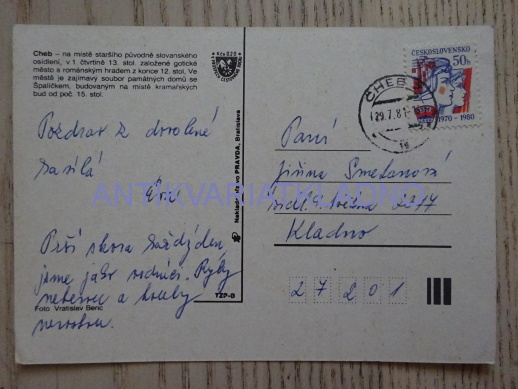 Cheb – na místě staršího původně slovanského
osídlení, v 1. čtvrtině 13. stol. založené gotické
město s románským hradem z konce 12. stol. Ve
městě je zajímavý soubor památných domů se
Špalíčkem, budovaným na místě kramářských
bud od poč. 15. stol.
Kčs 0,20
ČESKOSLOVENSKO
50h
1970 - 1980
CHEB 1
29.7.81
Pozdrav z dovolené
zasílá
Eva
Prší skoro každý den,
jsme jako vodníci. Ryby
neberou a houby
nerostou.
Foto Vratislav Beric
TZP-B
Nakladatelstvo PRAVDA, Bratislava
Paní
Jiřina Smetanová
Sídl. 9. května 2217
Kladno
27201
ANTIKVARIATKLADNO